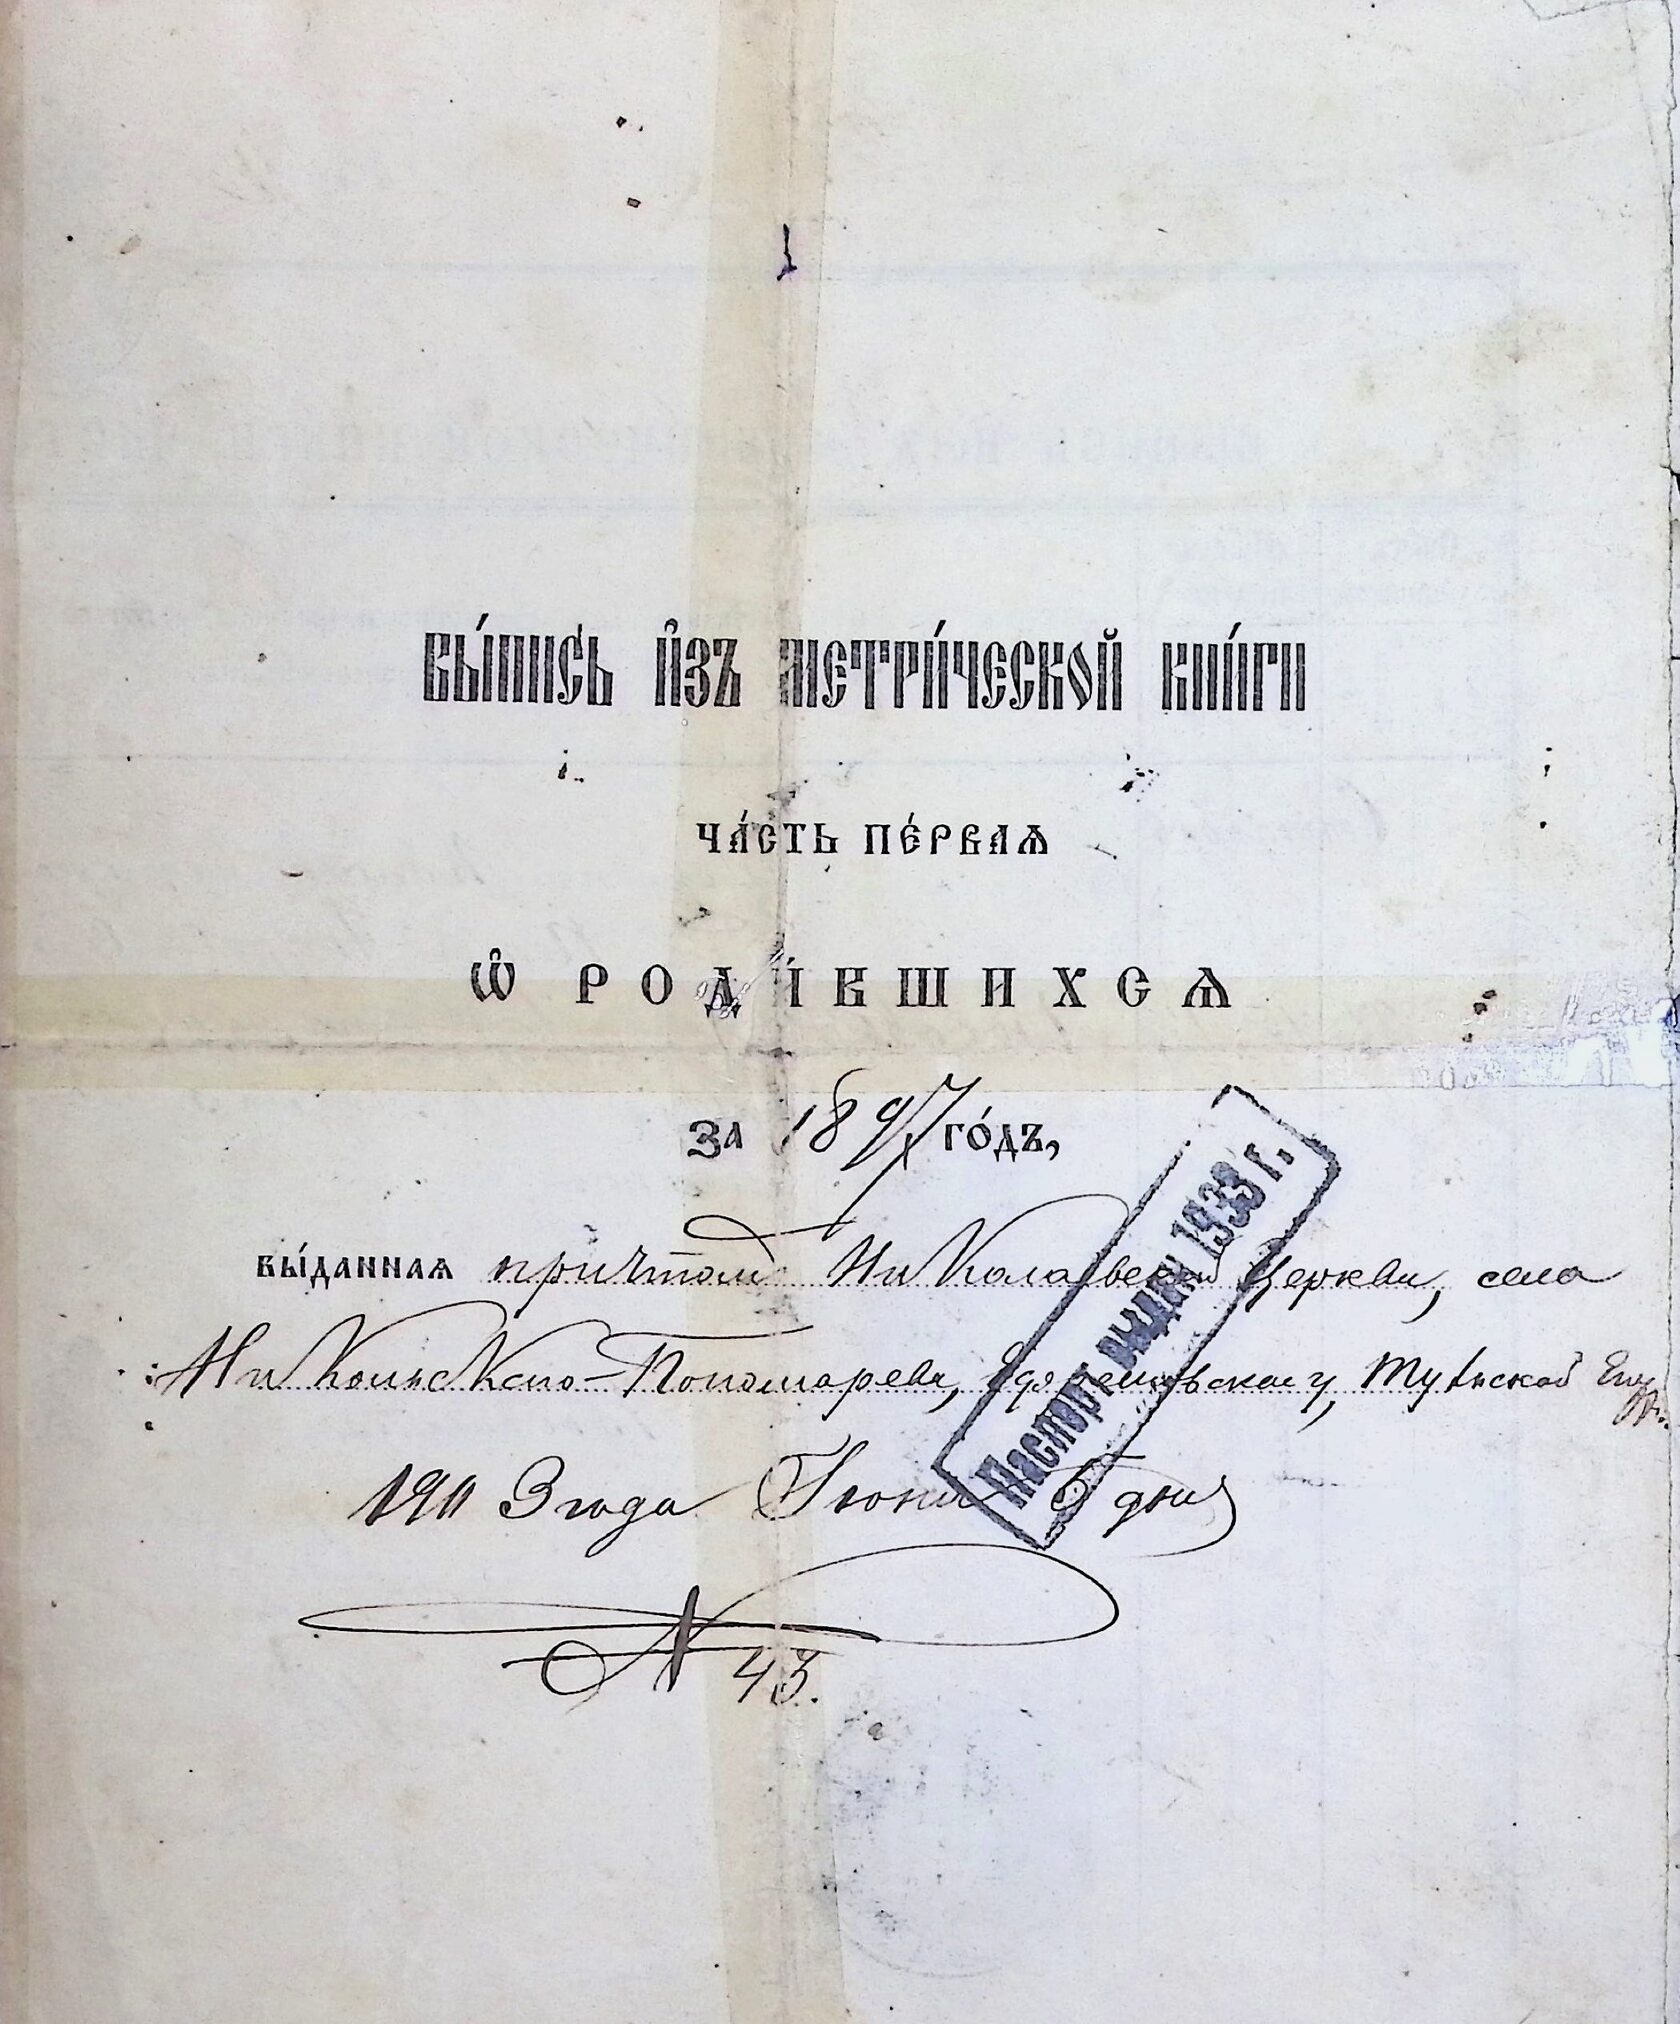 Вы́пись и҆зъ метри́ческой кни́ги
Ча́сть пе́рваѧ
Ѽ роди́вшихсѧ
за 1897 го́дъ,
вы́даннаѧ причтомъ Николаевской Церкви, села
Никольскаго-Пономарева, у, Тульской Епар.
190 3 года Іюня 5 дня
№ 43.
Паспорт выдан 1933 г.